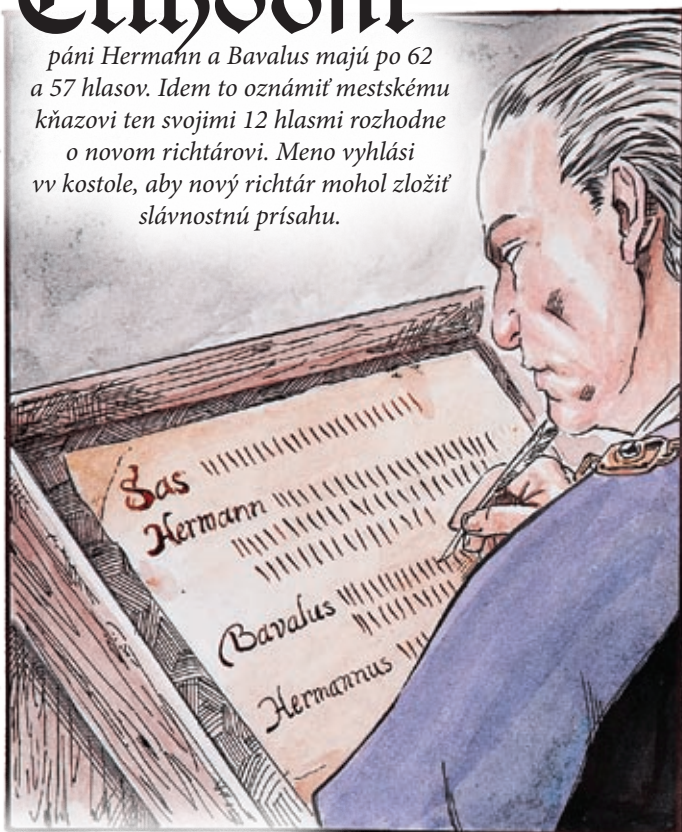 Ctihodní
páni Hermann a Bavalus majú po 62
a 57 hlasov. Idem to oznámiť mestskému
kňazovi ten svojimi 12 hlasmi rozhodne
o novom richtárovi. Meno vyhlási
vv kostole, aby nový richtár mohol zložiť
slávnostnú prísahu.
Sas
Hermann
Bavalus
Hermannus